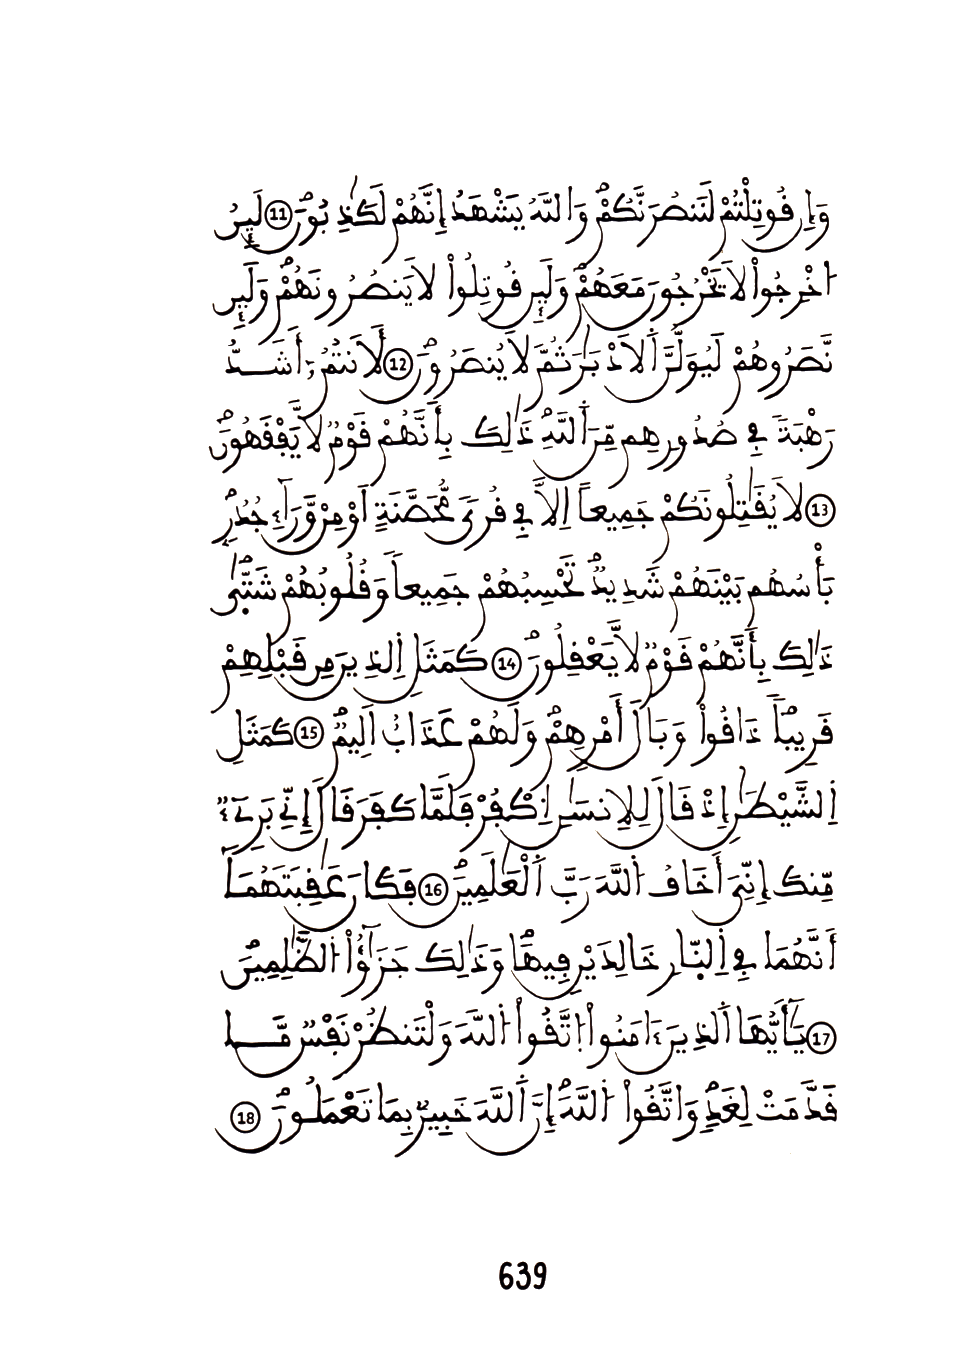 وَإِن قُوتِلْتُمْ لَنَنصُرَنَّكُمْ وَاللَّهُ يَشْهَدُ إِنَّهُمْ لَكَٰذِبُونَ 11 لَئِنُ
ا۟خْرِجُوا۟ لَا يَخْرُجُونَ مَعَهُمْ وَلَئِن قُوتِلُوا۟ لَا يَنصُرُونَهُمْ وَلَئِن
نَّصَرُوهُمْ لَيُوَلُّنَّ اَلَادْبَٰرَ ثُمَّ لَا يُنصَرُونَ 12 لَأَنتُمُۥٓ أَشَدُّ
رَهْبَةً فِي صُدُورِهِم مِّنَ اَللَّهِ ذَٰلِكَ بِأَنَّهُمْ قَوْمٌ لَّا يَفْقَهُونَ
13 لَا يُقَٰتِلُونَكُمْ جَمِيعاً اِلَّا فِي قُرىً مُّحَصَّنَةٍ اَوْ مِنْ وَّرَآءِ جُدُرِۢ
بَأْسُهُم بَيْنَهُمْ شَدِيدٌ تَحْسِبُهُمْ جَمِيعاً وَقُلُوبُهُمْ شَتَّىٰ
ذَٰلِكَ بِأَنَّهُمْ قَوْمٌ لَّا يَعْقِلُونَ 14 كَمَثَلِ اِلذِينَ مِن قَبْلِهِمْ
قَرِيباً ذَاقُوا۟ وَبَالَ أَمْرِهِمْ وَلَهُمْ عَذَابٌ اَلِيمٌ 15 كَمَثَلِ
اِلشَّيْطَٰنِ إِذْ قَالَ لِلِانسَٰنِ اِكْفُرْ فَلَمَّا كَفَرَ قَالَ إِنِّي بَرِيٓءٌ
مِّنكَ إِنِّيَ أَخَافُ اُللَّهَ رَبَّ اَلْعَٰلَمِينَ 16 فَكَانَ عَٰقِبَتَهُمَآ
أَنَّهُمَا فِي اِلنَّارِ خَالِدَيْنِ فِيهَا وَذَٰلِكَ جَزَٰٓؤُا۟ اُلظَّٰلِمِينَ
17 يَٰٓأَيُّهَا اَلذِينَ ءَامَنُوا۟ اُ۪تَّقُوا۟ اُللَّهَ وَلْتَنظُرْ نَفْسٌ مَّا
قَدَّمَتْ لِغَدٍ وَاتَّقُوا۟ اُللَّهَ إِنَّ اَللَّهَ خَبِيرٌۢ بِمَا تَعْمَلُونَ 18
639